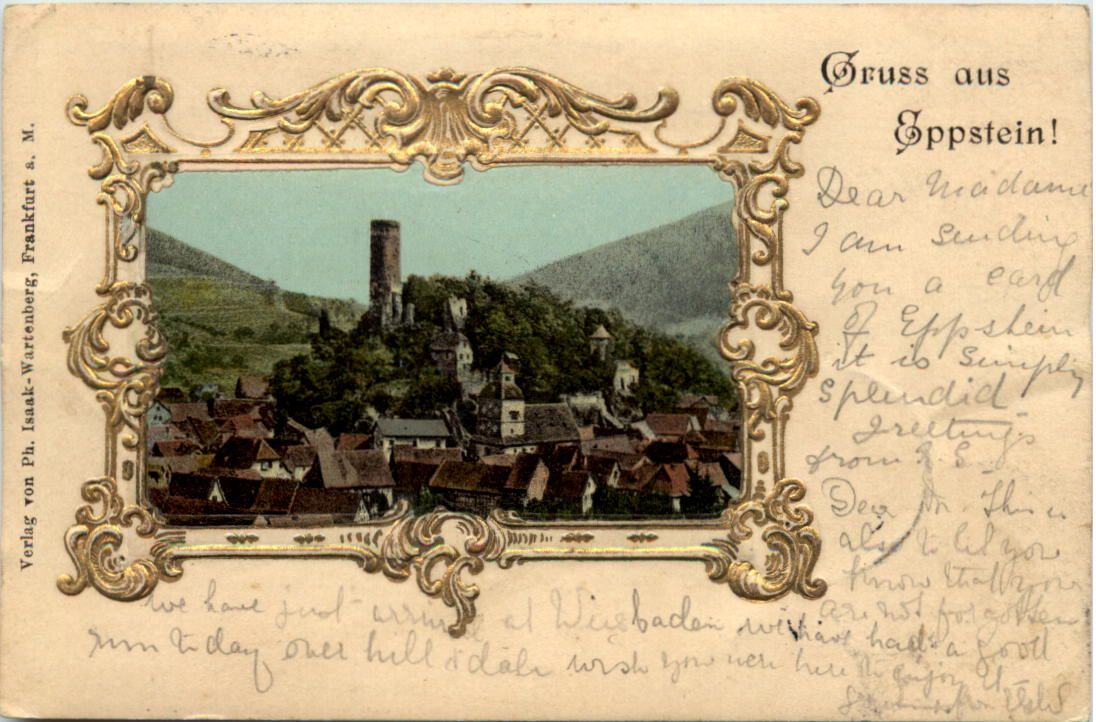 Gruss aus
Eppstein!
Dear Madame
I am sending
you a card
of Eppstein
it is simply
splendid
Greetings
from
Dear This is
also to let you
know that you
are not forgotten
we have just arrived at Weisbaden we have had a good
run to day over hill & dale wish you were here to enjoy it
Verlag von Ph. Isaak-Wartenberg, Frankfurt a. M.